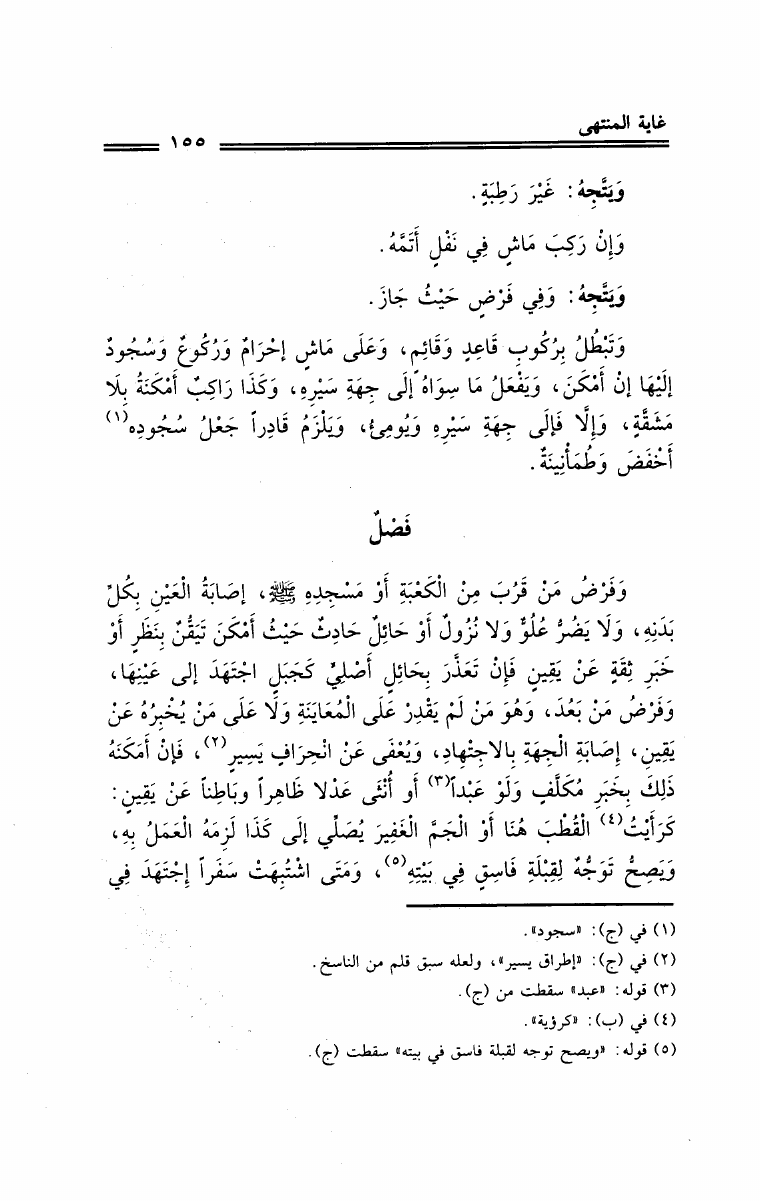 غاية المنتهى
١٥٥
وَيَتَّجِهُ: غَيْرَ رَطِبَةٍ.
وَإِنْ رَكِبَ مَاشٍ فِي نَفْلٍ أَتَمَّهُ.
وَيَتَّجِهُ: وَفِي فَرْضٍ حَيْثُ جَازَ.
وَتَبْطُلُ بِرُكُوبِ قَاعِدٍ وَقَائِمٍ، وَعَلَى مَاشٍ إحْرَامٌ وَرُكُوعٌ وَسُجُودٌ
إلَيْهَا إنْ أَمْكَنَ، وَيَفْعَلُ مَا سِوَاهُ إلَى جِهَةِ سَيْرِهِ، وَكَذَا رَاكِبٌ أَمْكَنَهُ بِلَا
مَشَقَّةٍ، وَإِلَّا فَإِلَى جِهَةِ سَيْرِهِ وَيُومِئُ، وَيَلْزَمُ قَادِراً جَعْلُ سُجُودِه(١)
أَخْفَضَ وَطُمَأْنِينَةٌ.
فَصْلٌ
وَفَرْضُ مَنْ قَرُبَ مِنْ الْكَعْبَةِ أَوْ مَسْجِدِهِ ﷺ، إصَابَةُ الْعَيْنِ بِكُلِّ
بَدَنِهِ، وَلَا يَضُرُّ عُلُوٌّ وَلَا نُزُولٌ أَوْ حَائِلٌ حَادِثٌ حَيْثُ أَمْكَنَ تَيَقُّنٌ بِنَظَرٍ أَوْ
خَبَرِ ثِقَةٍ عَنْ يَقِينٍ فَإِنْ تَعَذَّرَ بِحَائِلٍ أَصْلِيٍّ كَجَبَلٍ اجْتَهَدَ إلى عَيْنِهَا،
وَفَرْضُ مَنْ بَعُدَ، وَهُوَ مَنْ لَمْ يَقْدِرْ عَلَى الْمُعَايَنَةِ وَلَا عَلَى مَنْ يُخْبِرُهُ عَنْ
يَقِينٍ، إصَابَةُ الْجِهَةِ بِالاجْتِهَادِ، وَيُعْفَى عَنْ انْحِرَافٍ يَسِيرٍ(٢)، فَإِنْ أَمْكَنَهُ
ذَلِكَ بِخَبَرِ مُكَلَّفٍ وَلَوْ عَبْداً(٣) أو أُنْثَى عَدْلا ظَاهِراً وَبَاطِناً عَنْ يَقِينٍ:
كَرَأَيْتُ(٤) الْقُطْبَ هُنَا أَوْ الْجَمَّ الْغَفِيرَ يُصَلِّي إلَى كَذَا لَزِمَهُ الْعَمَلُ بِهِ،
وَيَصِحُّ تَوَجُّهٌ لِقِبْلَةِ فَاسِقٍ فِي بَيْتِهِ(٥)، وَمَتَى اشْتُبِهَتْ سَفَراً إجْتَهَدَ فِي
(١) في (ج): «سجود».
(٢) في (ج): «إطراق يسير»، ولعله سبق قلم من الناسخ.
(٣) قوله: «عبد» سقطت من (ج).
(٤) في (ب): «كرؤية».
(٥) قوله: «ويصح توجه لقبلة فاسق في بيته» سقطت (ج).